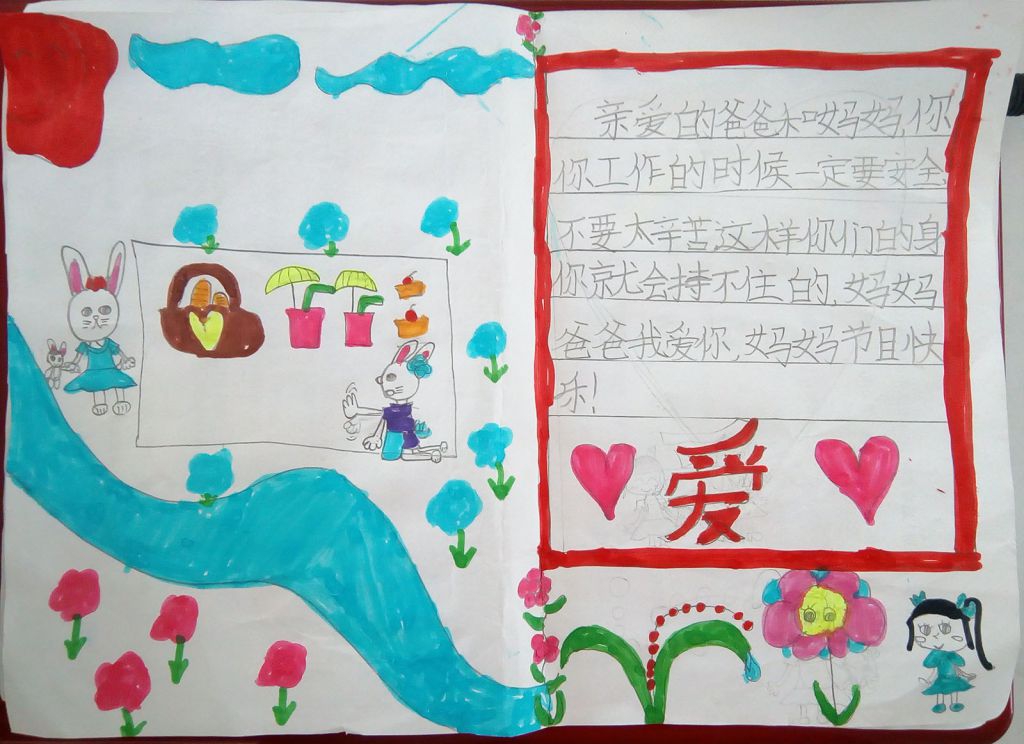 亲爱的爸爸和妈妈,你
你工作的时候一定要安全,
不要太辛苦这样你们的身
你京尤会持不住的,妈妈
爸爸我爱你,妈妈节日快
乐!
爱